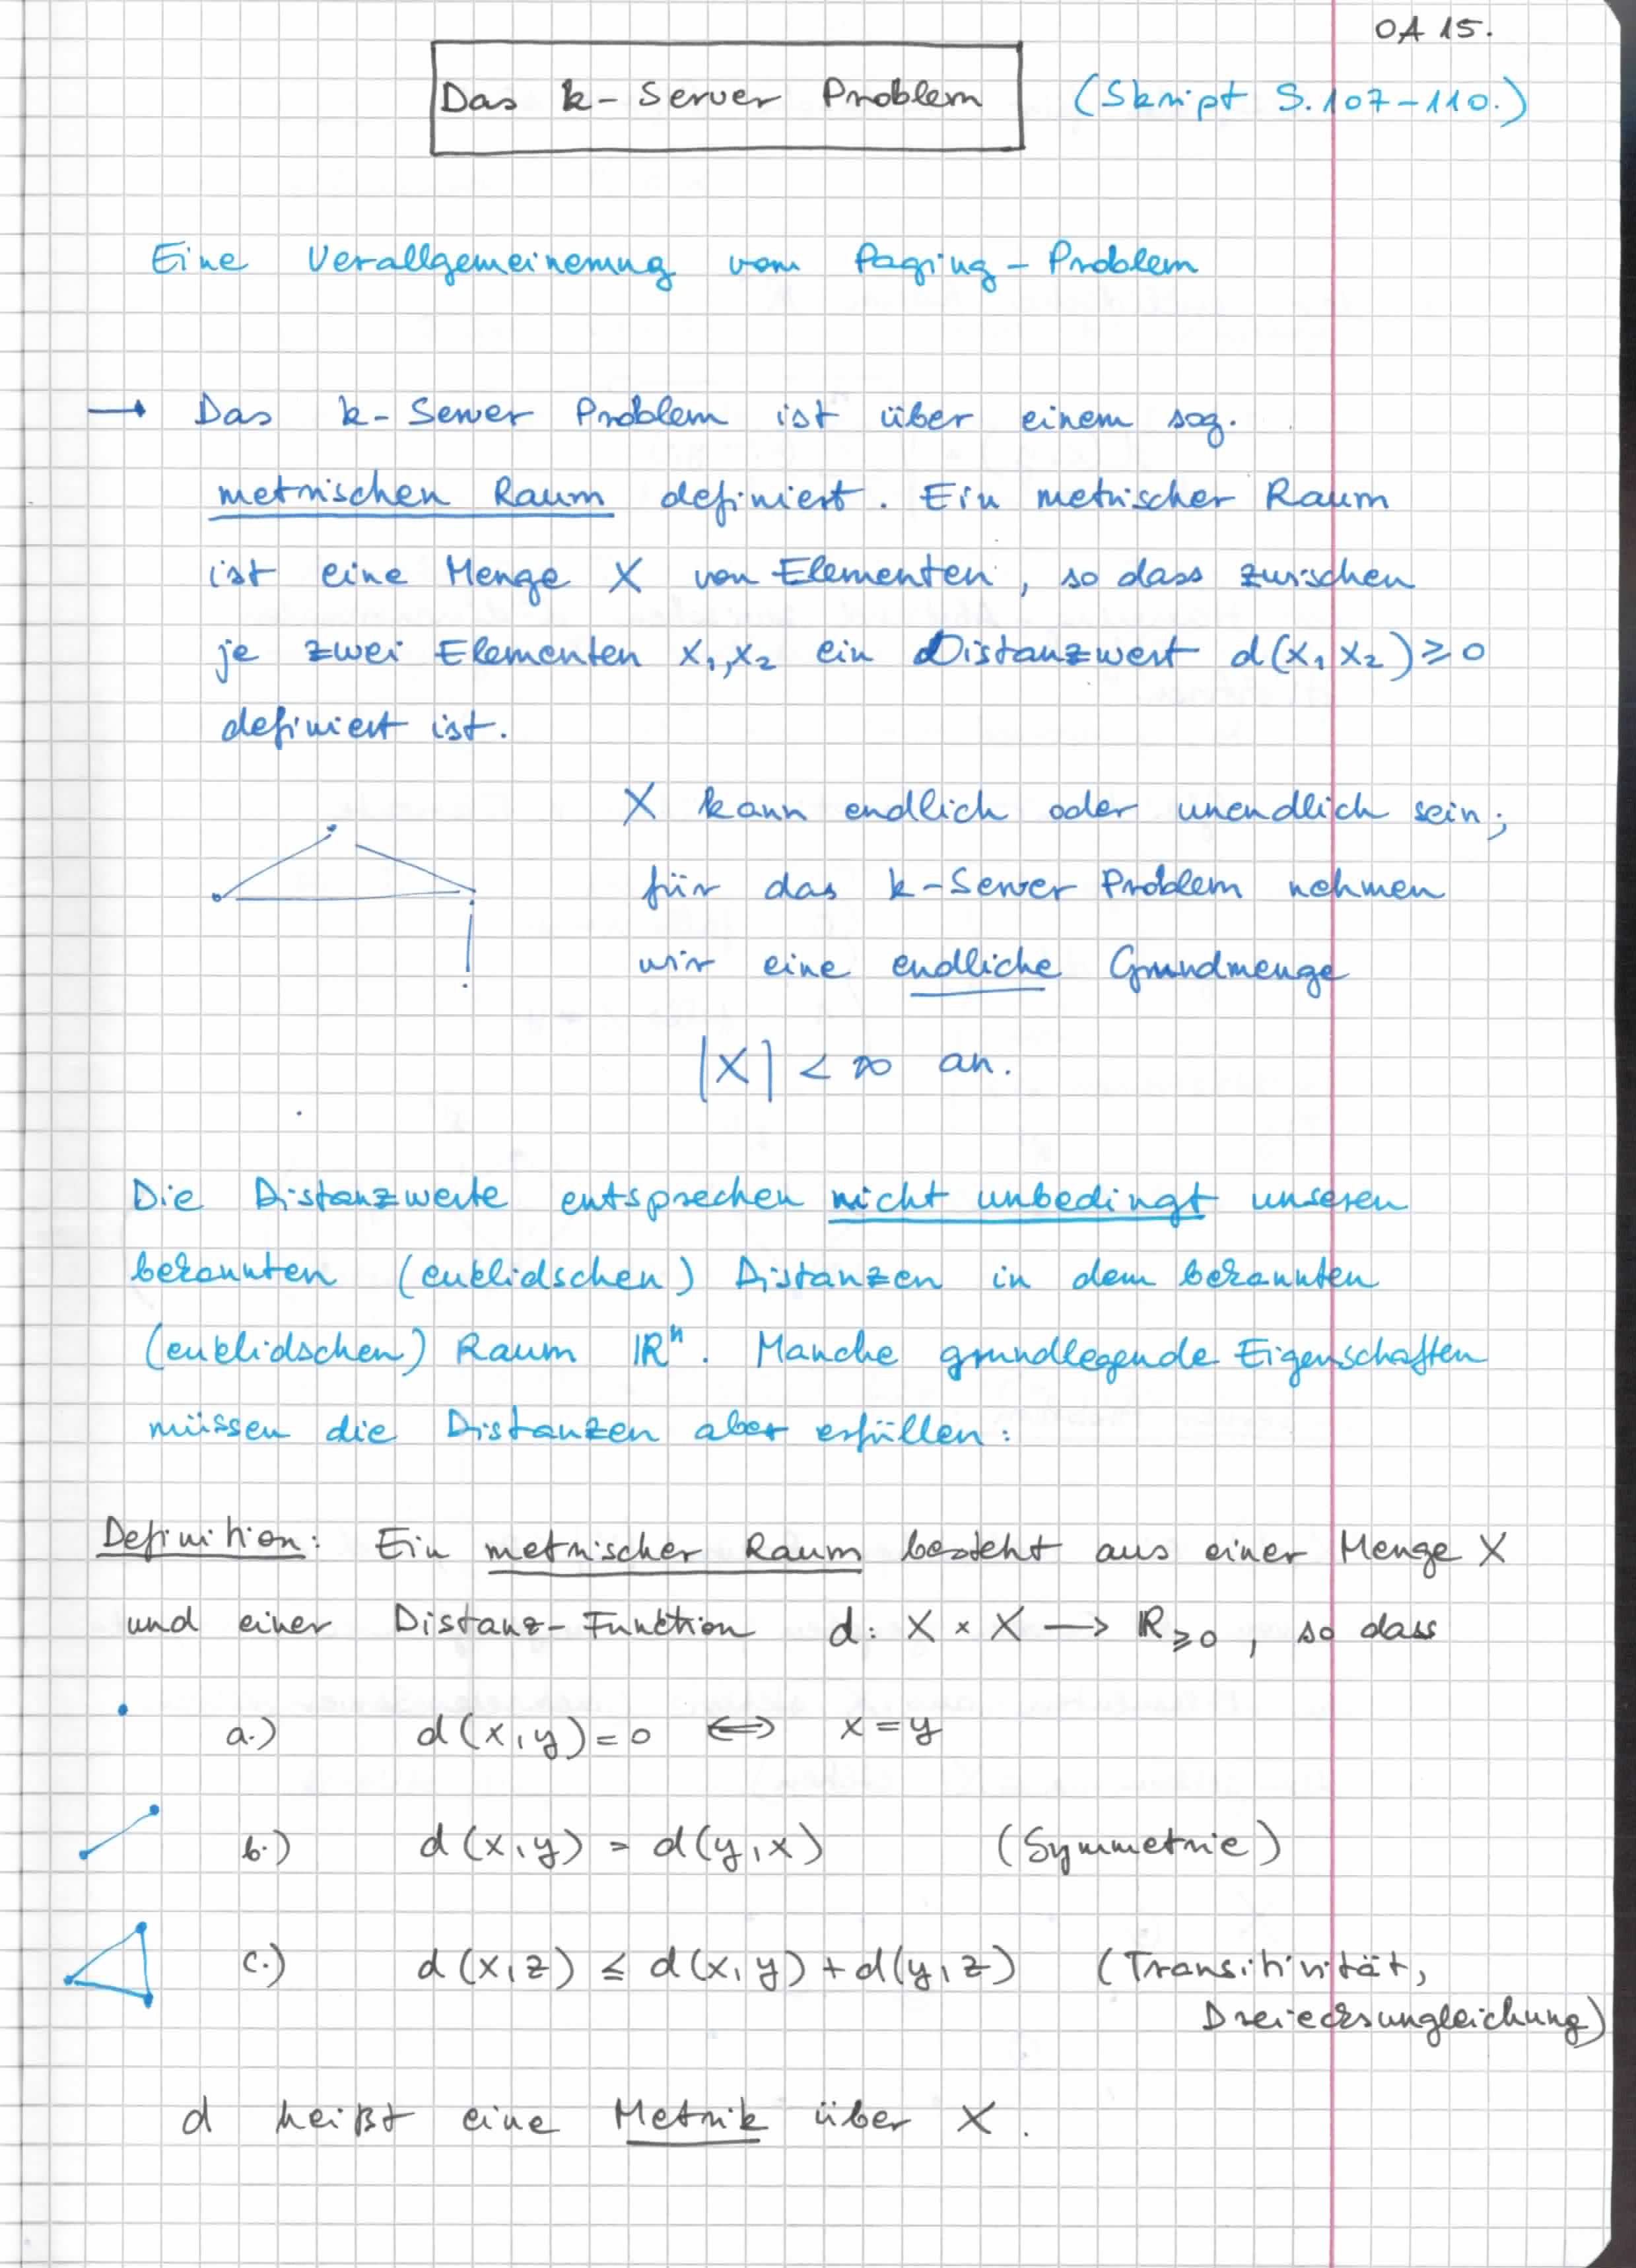 OA 15.
Das k-Server Problem (Skript S. 107-110.)
Eine Verallgemeinerung vom Paging-Problem
→ Das k-Server Problem ist über einem sog.
metrischen Raum definiert. Ein metrischer Raum
ist eine Menge X von Elementen, so dass zwischen
je zwei Elementen x₁,x₂ ein Distanzwert d(x₁,x₂)≥0
definiert ist.
X kann endlich oder unendlich sein;
für das k-Server Problem nehmen
wir eine endliche Grundmenge
|X| < ∞ an.
Die Distanzwerte entsprechen nicht unbedingt unseren
bekannten (euklidschen) Distanzen in dem bekannten
(euklidschen) Raum ℝⁿ. Manche grundlegende Eigenschaften
müssen die Distanzen aber erfüllen:
Definition: Ein metrischer Raum besteht aus einer Menge X
und einer Distanz-Funktion d: X × X → ℝ≥0, so dass
a.) d(x,y)=0 ⟺ x=y
b.) d(x,y) = d(y,x) (Symmetrie)
c.) d(x,z) ≤ d(x,y)+d(y,z) (Transitivität,
Dreiecksungleichung)
d heißt eine Metrik über X.